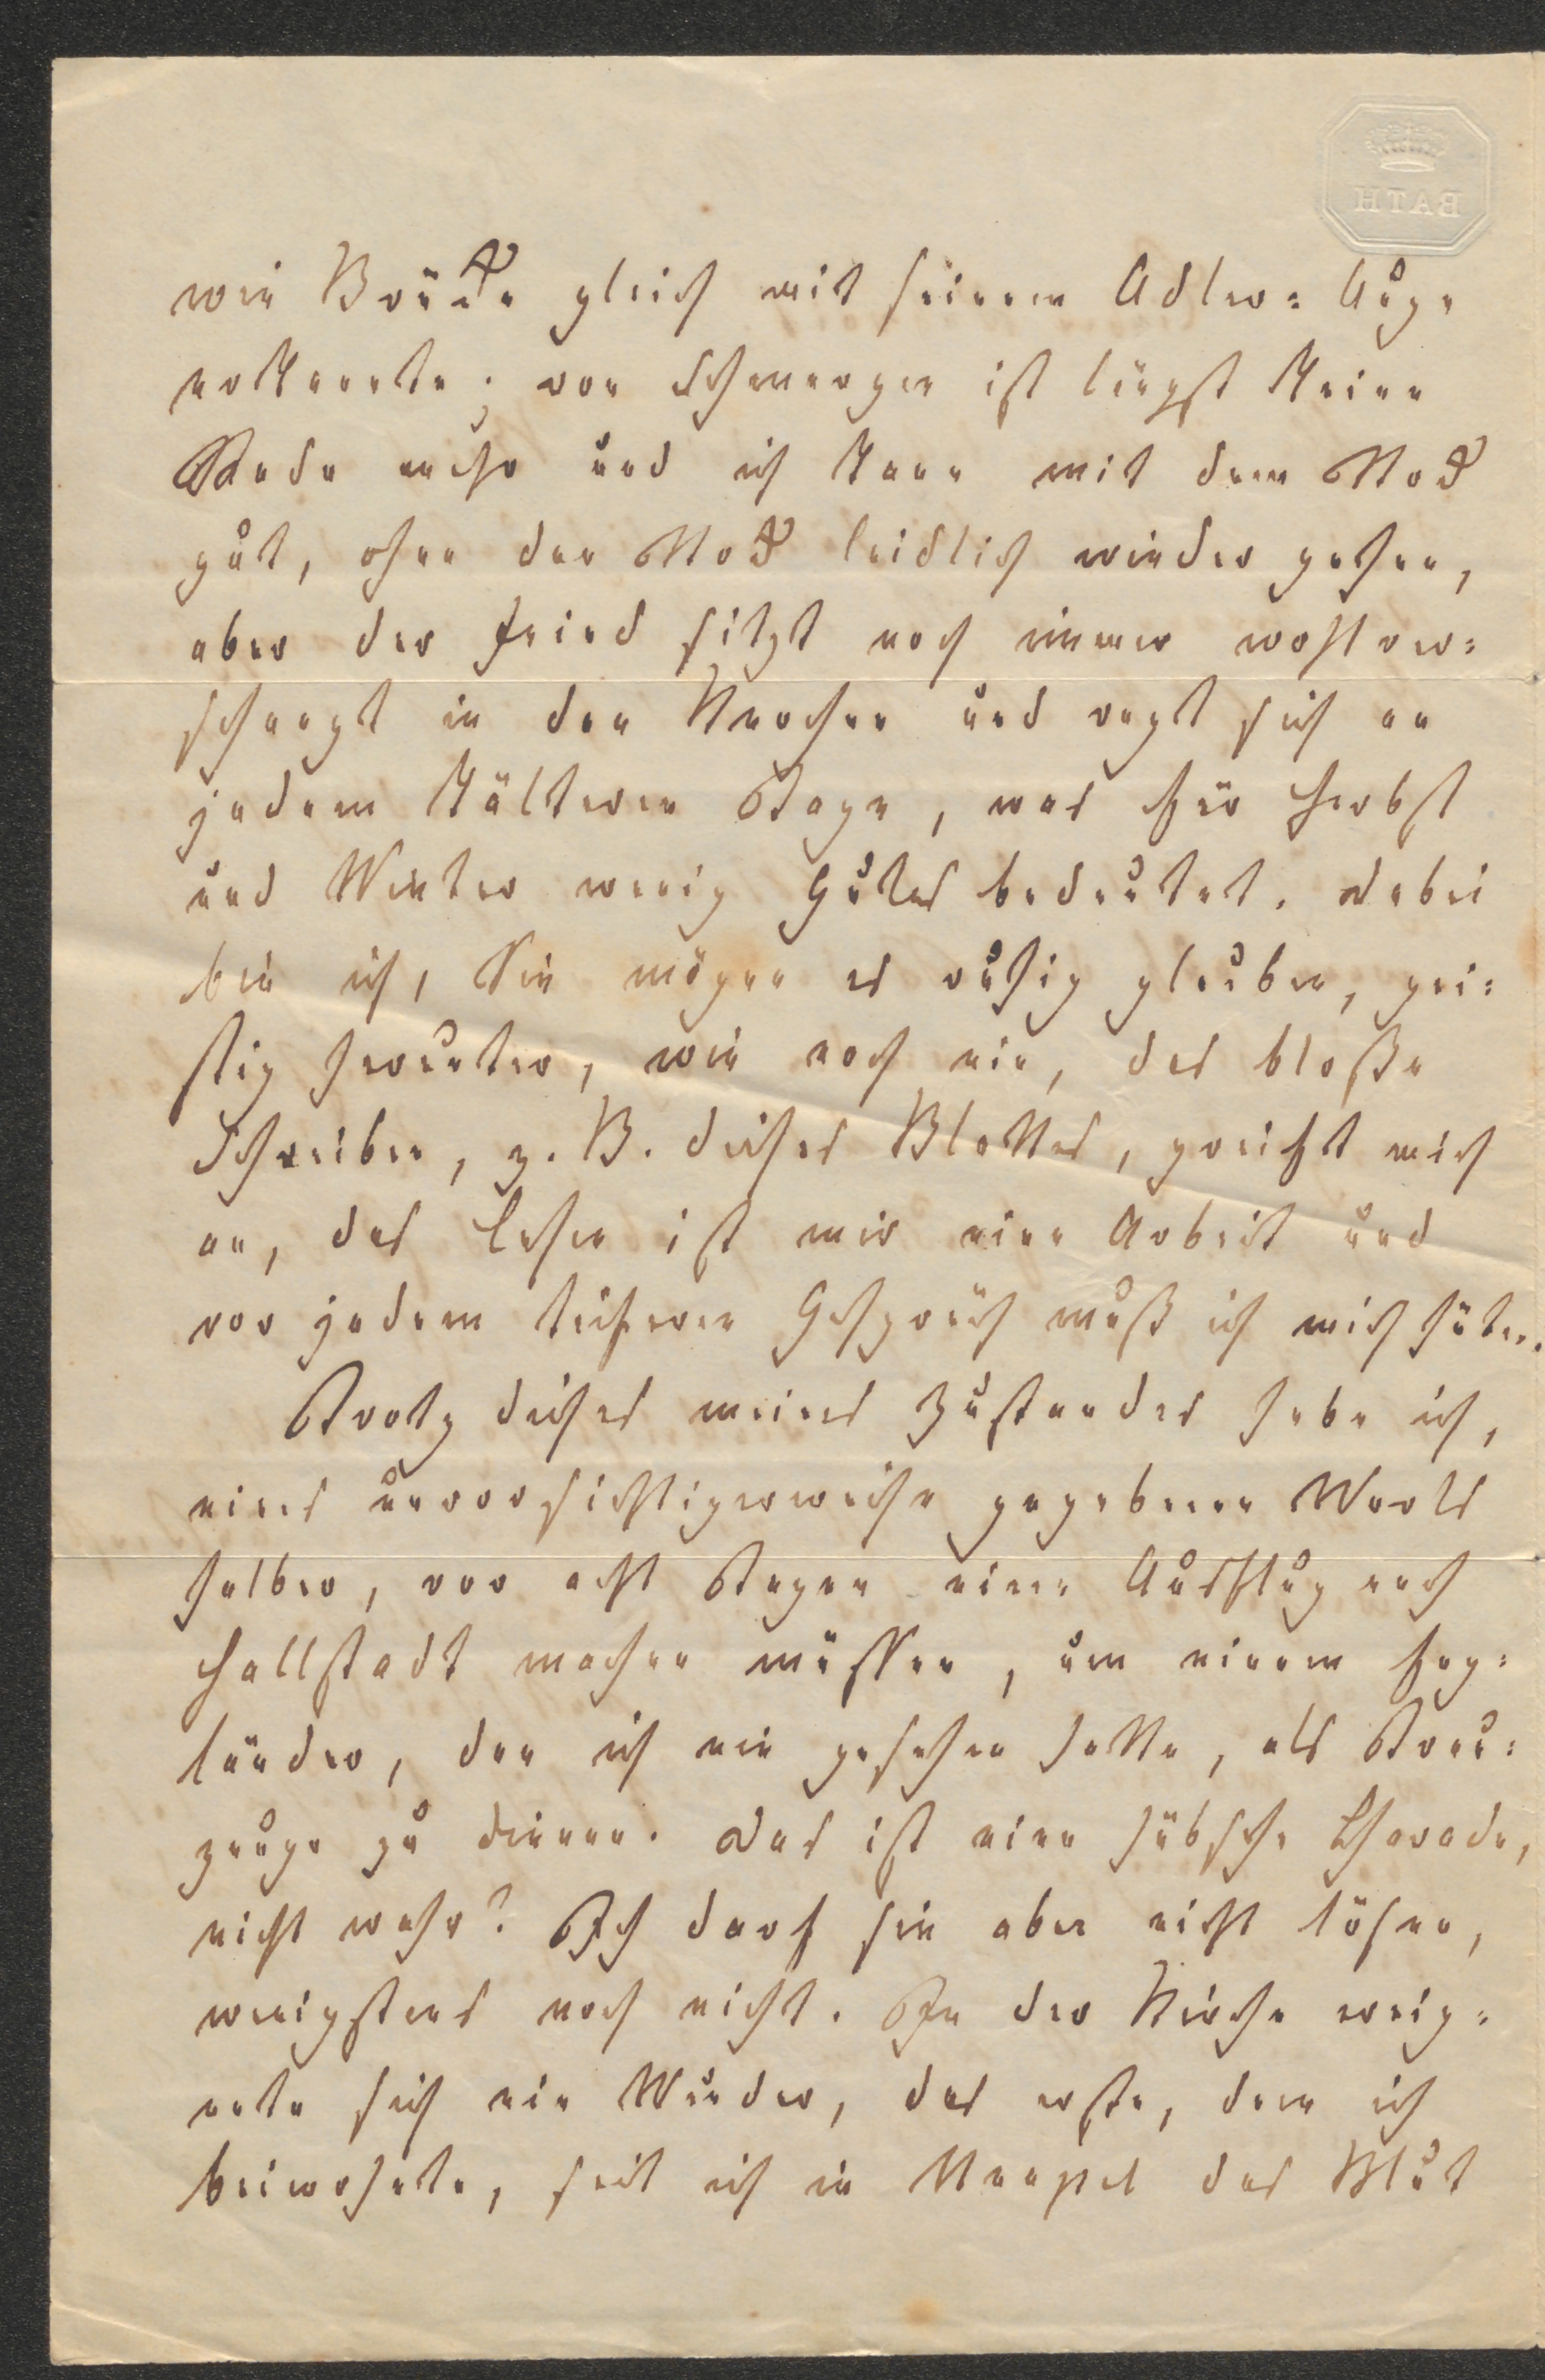 BATH
wie Brücke gleich mit seinem Adler-Auge
erkannte; von Schmerzen ist längst keine
Rede mehr und ich kann mit dem Stock
gut, ohne den Stock leidlich wieder gehen,
aber der Feind sitzt noch immer wohlver-
schanzt in den Knochen und regt sich an
jedem kälteren Tage, was für Herbst
und Winter wenig Gutes bedeutet. Dabei
bin ich, Sie mögen es ruhig glauben, gei-
stig herunter, wie noch nie, das bloße
Schreiben, z. B. dieses Blattes, greift mich
an, das Lesen ist mir eine Arbeit und
vor jedem tieferen Gespräch muß ich mich hüten.
Trotz dieses meines Zustandes habe ich,
eines unvorsichtigerweise gegebenen Worts
halber, vor acht Tagen einen Ausflug nach
Hallstadt machen müssen, um einem Eng-
länder, den ich nie gesehen hatte, als Trau-
zeuge zu dienen. Das ist eine hübsche Charade,
nicht wahr? Ich darf sie aber nicht lösen,
wenigstens noch nicht. In der Kirche ereig-
nete sich ein Wunder, das erste, dem ich
beiwohnte, seit ich in Neapel das Blut